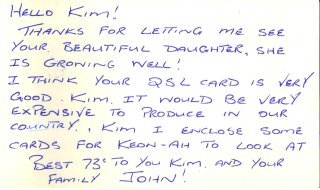 HELLO KIM!
THANKS FOR LETTING ME SEE
YOUR BEAUTIFUL DAUGHTER, SHE
IS GRONING WELL!
I THINK YOUR QSL CARD IS VERY
GOOD. KIM. IT WOULD BE VERY
EXPENSIVE TO PRODUCE IN OUR
COUNTRY., KIM I ENCLOSE SOME
CARDS FOR KEON-AH TO LOOK AT
BEST 73's TO YOU KIM. AND YOUR
FAMILY JOHN!